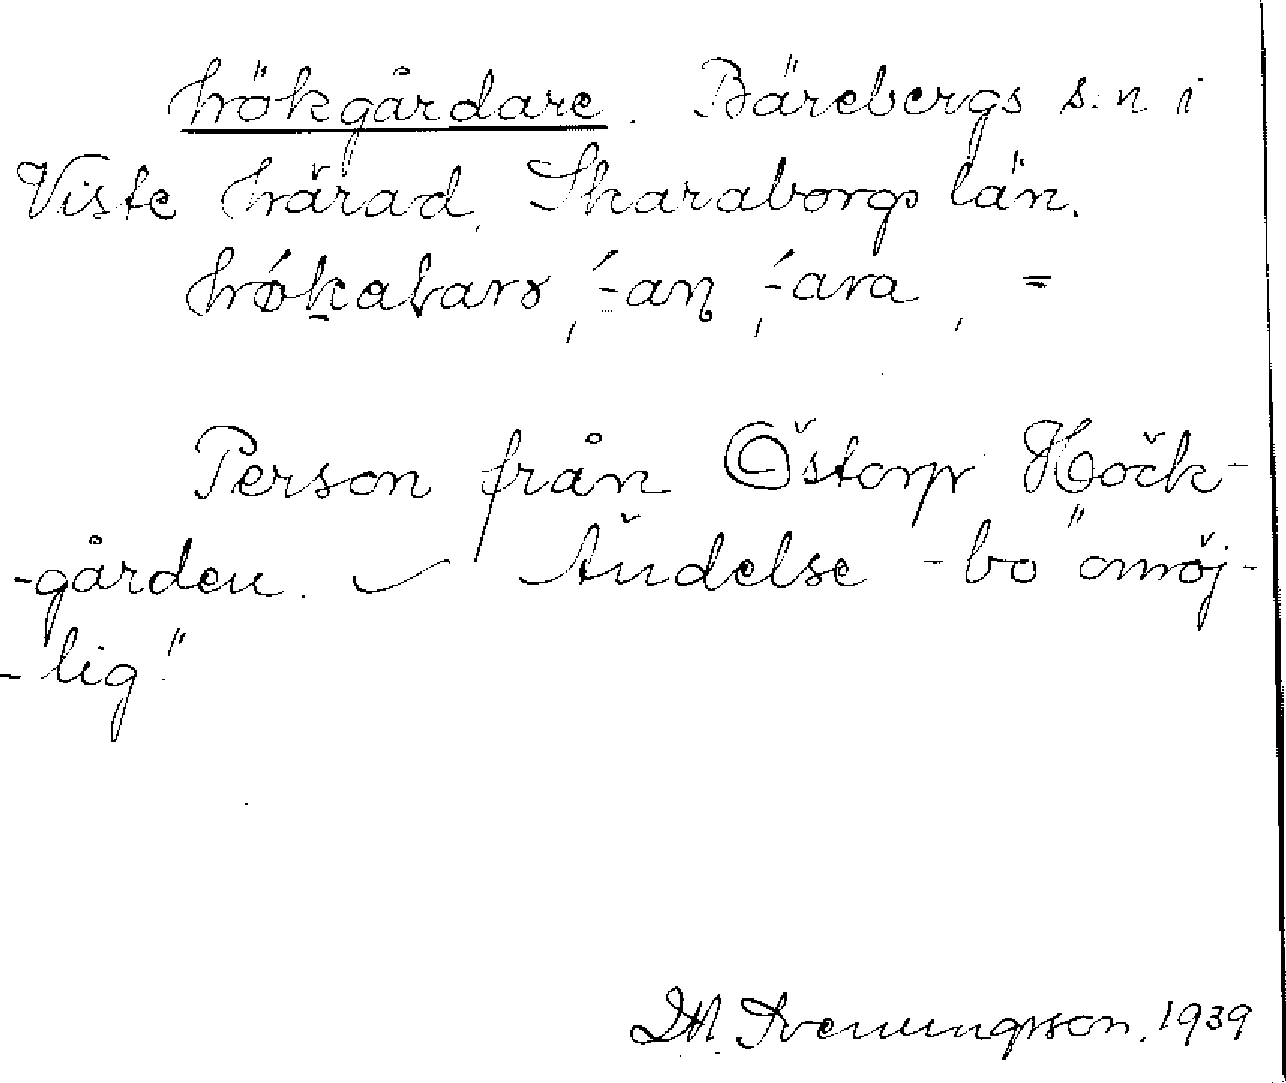 hökgårdare. Bärebergs s:n i
Viste härad, Skaraborgs län.
-an, -ara, =
Person från Östorp Höck-
-gården. Ändelse -bo "omöj-
-lig"
Svenungsson. 1939